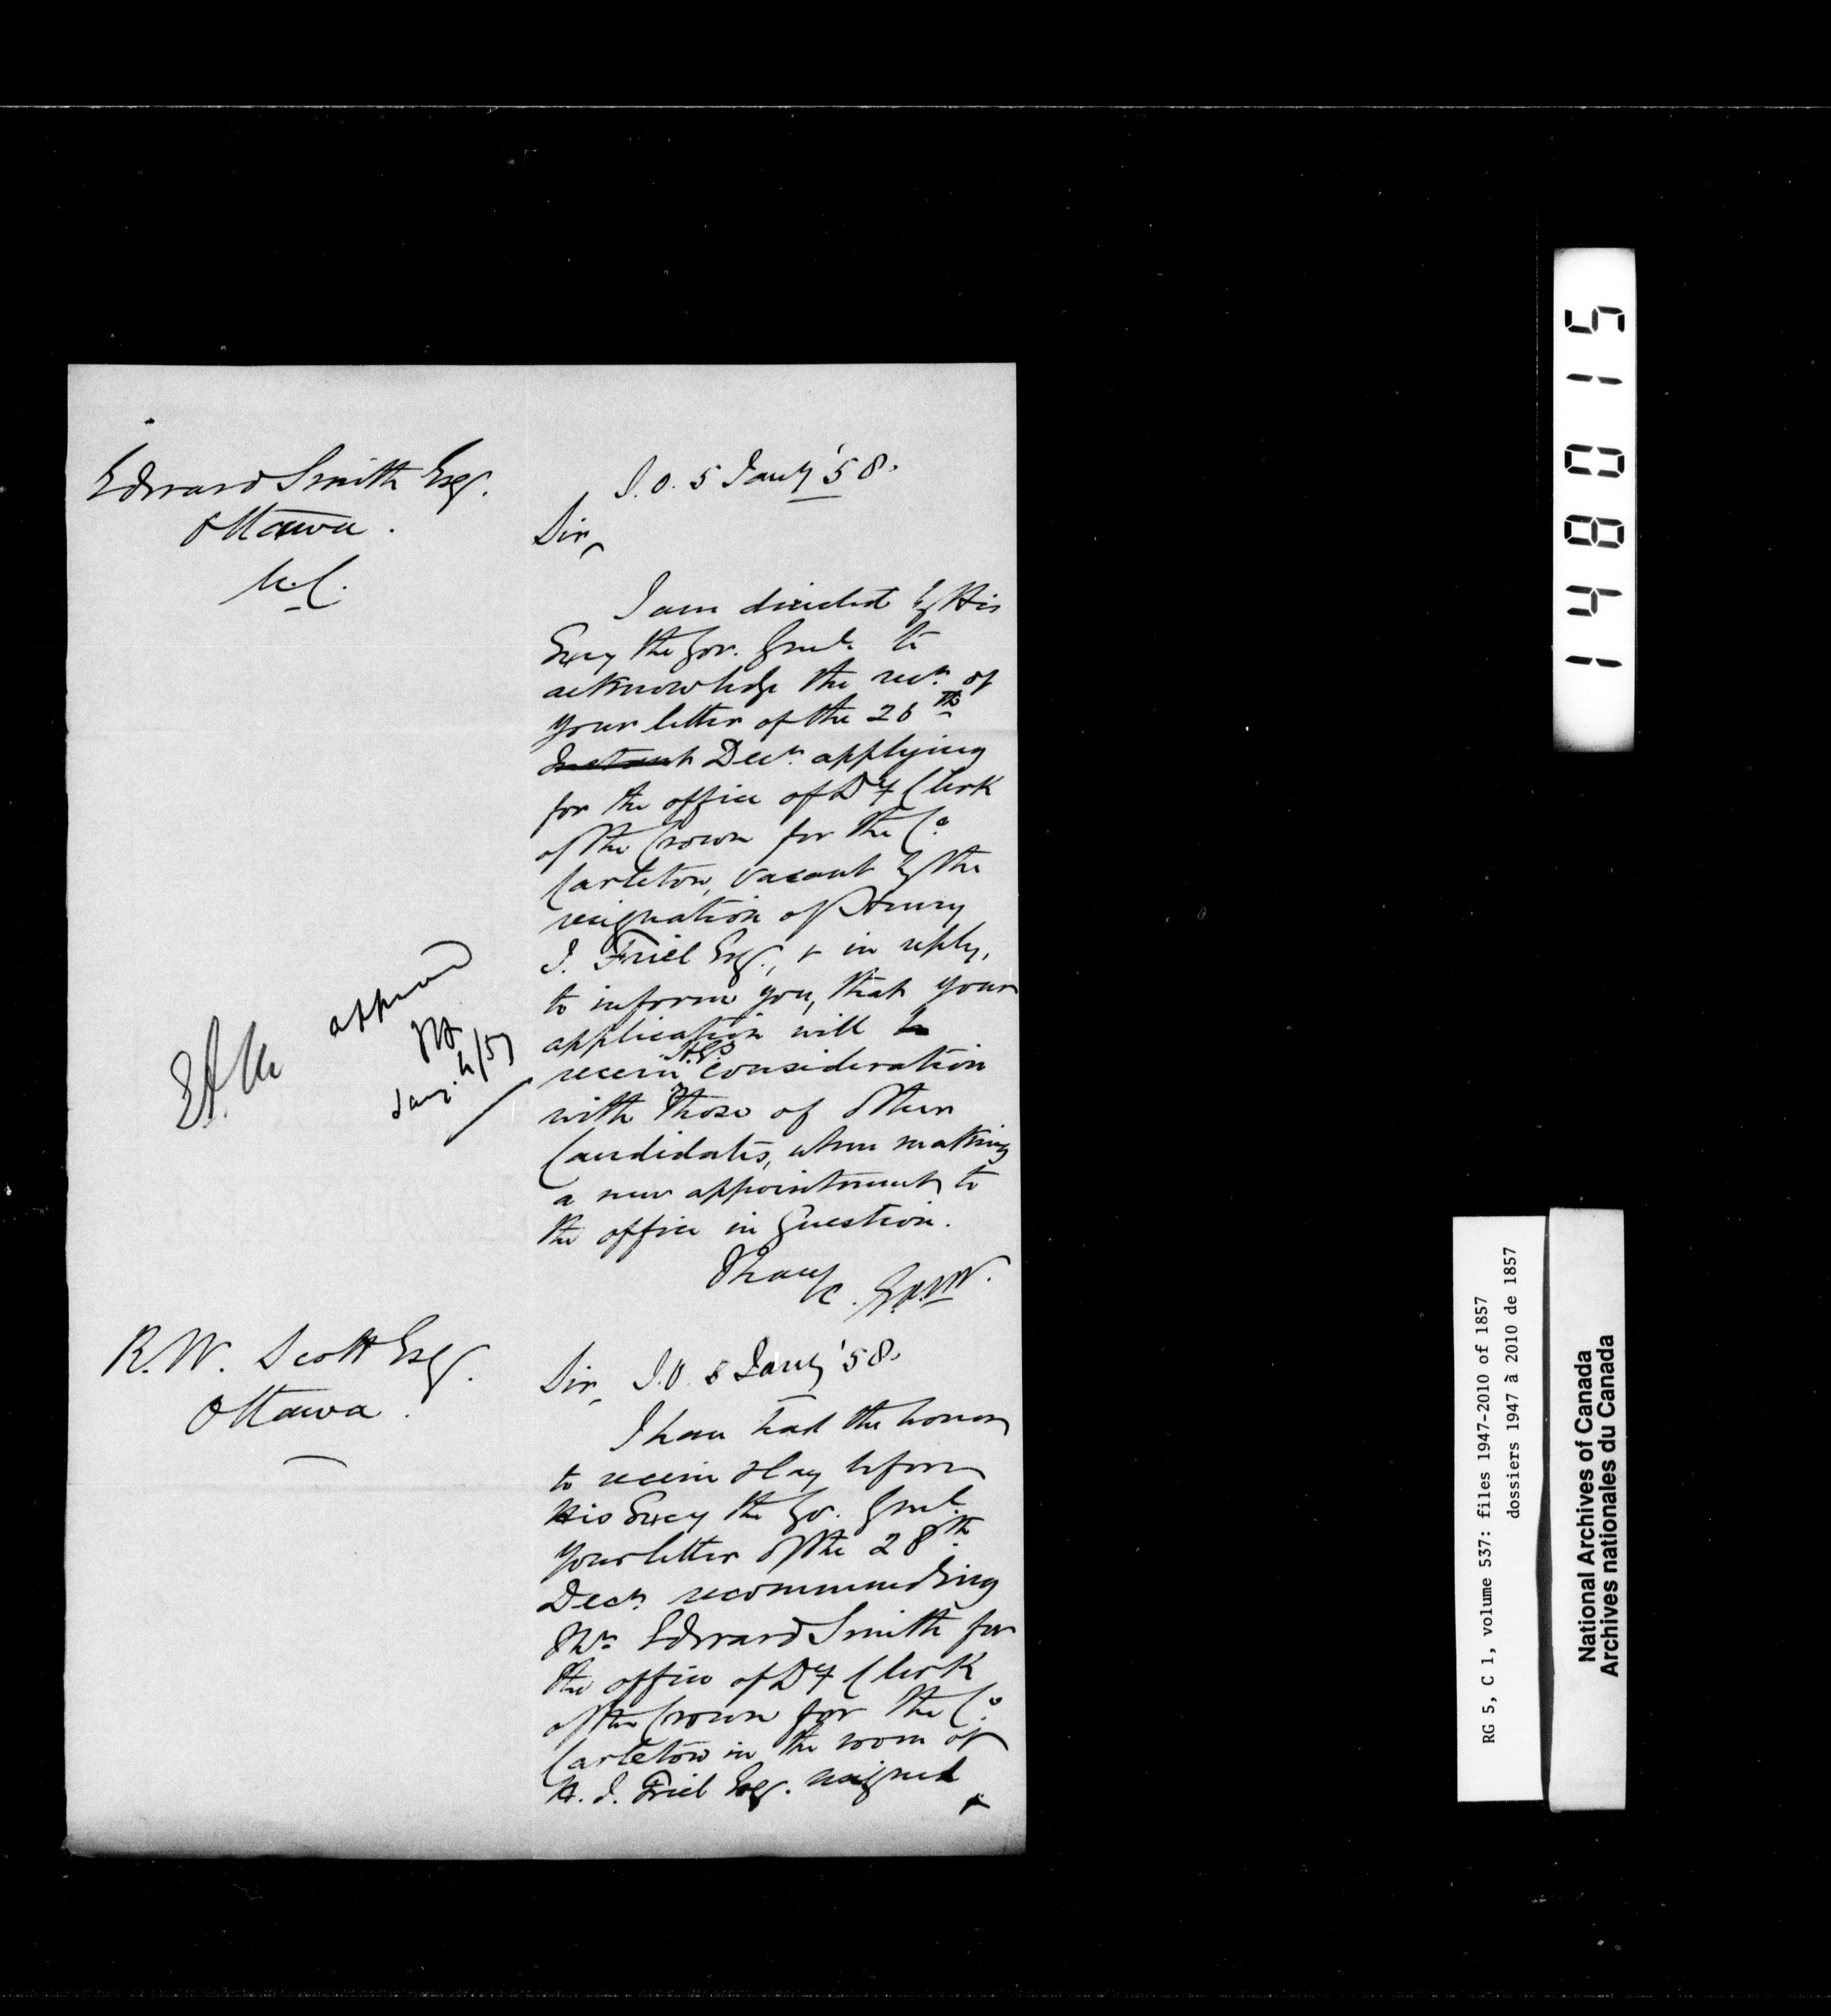 Edward Smith Esq.
Ottawa.
U.C.
S.O. 5 Jany '58.
Sir,
I am directed by His
Excy the Gov. Genl. to
acknowledge the rect. of
your letter of the 26th
Instant Decr. applying
for the office of Dy Clerk
of the Crown for the Co.
Carleton, vacant by the
resignation of Henry
J. Friel Esq., & in reply,
to inform you, that your
application will be
receive H.E's consideration
with those of other
Candidates, when making
a new appointment to
the office in Question.
I have
&c.
approved
Jany. 4/57
R.W. Scott Esq.
Ottawa.
Sir, S.O. 5 Jany '58.
I have had the honor
to receive & lay before
His Excy the Gov. Genl.
your letter of the 28th.
Decr. recommending
Mr. Edward Smith for
the office of Dy Clerk
of the Crown for the Co.
Carleton in the room of
H. J. Friel Esq. resigned
&
148015
RG 5, C 1, volume 537: files 1947-2010 of 1857
dossiers 1947 à 2010 de 1857
National Archives of Canada
Archives nationales du Canada